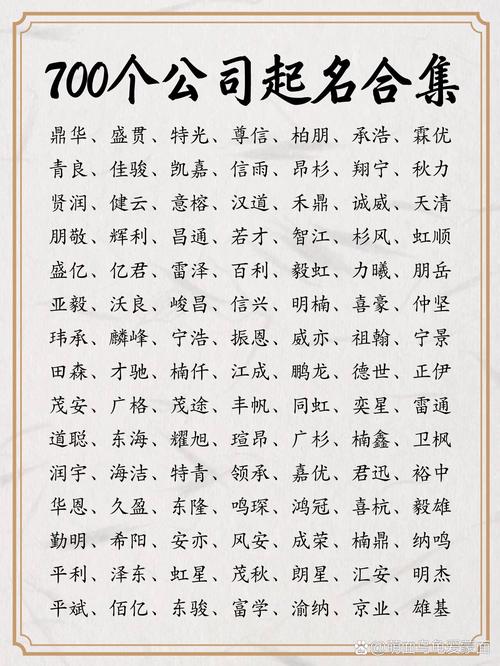 700个公司起名合集
鼎华、盛贯、特光、尊信、柏朋、承浩、霖优
青良、佳骏、凯嘉、信雨、昂杉、翔宁、秋力
贤润、健云、意榕、汉道、禾鼎、诚威、天清
朋敬、辉利、昌通、若才、智江、杉风、虹顺
盛亿、亿君、雷泽、百利、毅虹、力曦、朋岳
亚毅、沃良、峻昌、信兴、明楠、喜豪、仲坚
玮承、麟峰、宁浩、振恩、威亦、祖翰、宁景
田森、才驰、楠仟、江成、鹏龙、德世、正伊
茂安、广格、茂途、丰帆、同虹、奕星、雷通
道聪、东海、耀旭、瑄昂、广杉、楠鑫、卫枫
润宇、海洁、特青、领承、嘉优、君迅、裕中
华恩、久盈、东隆、鸣琛、鸿冠、喜杭、毅雄
勤明、希阳、安亦、风安、成荣、楠鼎、纳鸣
平利、泽东、虹星、茂秋、朗星、汇安、明杰
平斌、佰亿、东骏、富学、渝纳、京业、雄基